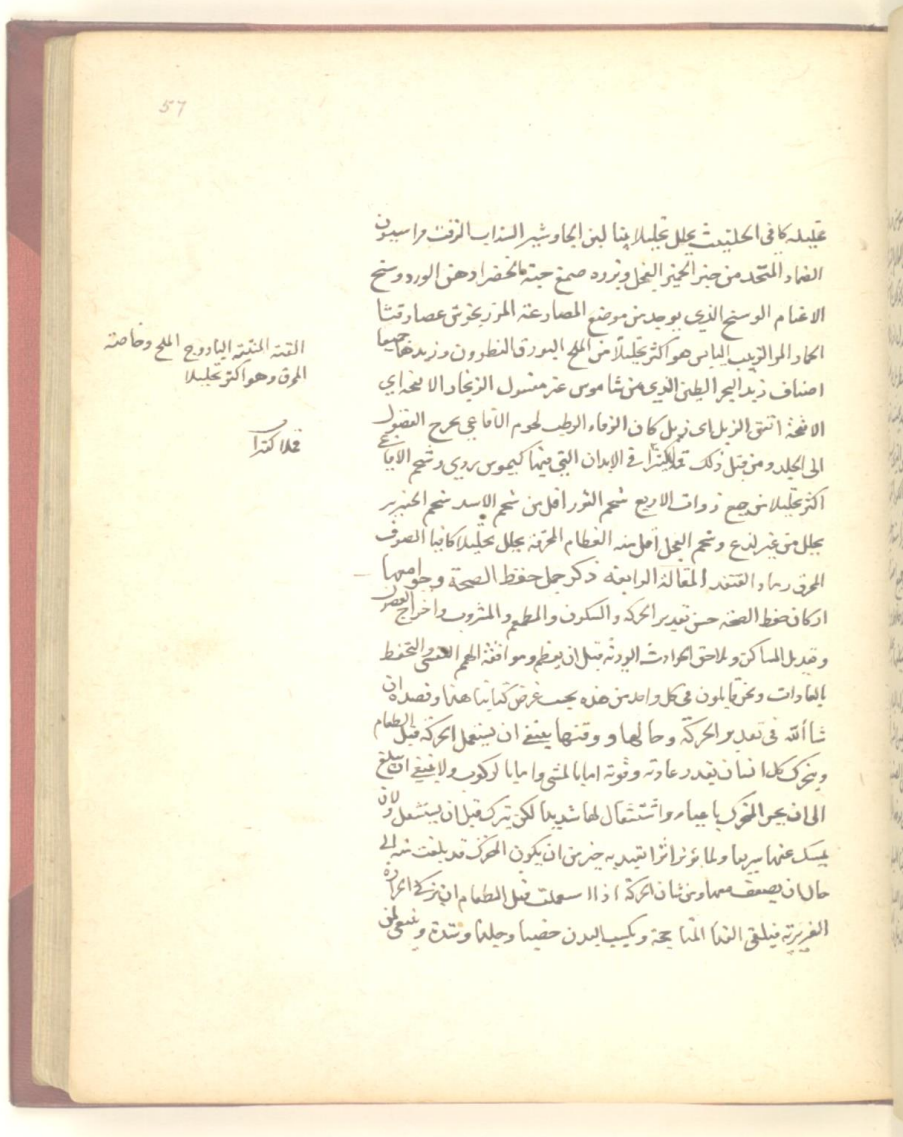 57
تحليله كافى الحلتيت يحلل تحليلا بينا لبن الجاوشير السذاب الزفت فراسيون
الضماد المتخذ من خبز الخمير الفجل وبزره صمغ حبة الخضرا دهن الورد وسخ
الاغنام الوسخ الذي يوجد من موضع المصارعة المر زنجوش عصارة قثا
الحمار المو الزبيب اليابس هو اكثر تحليلا من الملح البورق النطرون وزبدها جميعا
اصناف زبد البحر الطين الذي من شاموس غير مغسول الزنجار الانفحة اي
الانفحة اتفق الزبل اى زبل كان الزفاء الرطب لحوم الافاعي تخرج الفضول
الى الجلد ومن قبل ذلك قملا كثيرا في الابدان التي فيها كيموس ردي وشحم الافاعي
اكثر تحليلا من جميع ذوات الاربع شحم الثور اقل من شحم الاسد شحم الخنزير
يحلل من غير لذع وشحم العجل اقل منه العظام المحرقة يحلل تحليلا كافيا الصوف
المحرق رماد القنفذ المقالة الرابعة ذكر جمل حفظ الصحة وجوامعها
اركان حفظ الصحة حسن تقدير الحركة والسكون والمطعم والمشروب واخراج الفضول
وتعديل المساكن وتلاحق الحوادث الردئة قبل ان يعظم وموافقة الهم النفسى والتحفظ
بالعادات ونحن قايلون في كل واحد من هذه بحسب غرض كتابنا هذا وقصده ان
شا الله في تقدير الحركة وحالها ووقتها ينبغي ان يستعمل الحركة قبل الطعام
ويتحرك كل انسان بقدر عادته وقوته اما بالمشى واما بالركوب ولا ينبغي ان يبلغ
الى ان يحس المتحرك باعياء واستثقال لها شديد لكن يترك قبل ان يستثقل ولان
يمسك عنها سريعا ولما يؤثر اثرا يعتد به خير من ان يكون المتحرك قد بلغت منه الى
حال ان يضعف معها ومن شان الحركة اذا استعملت قبل الطعام ان يزكى الحرارة
الغريزية فيلقى الغذا المتاججة ويكسب البدن خصبا وجلدا وشدة وينبغي لمن
القتة المنتنة الباذروج الملح وخاصة
المحرق وهو اكثر تحليلا
قملا كثيرا